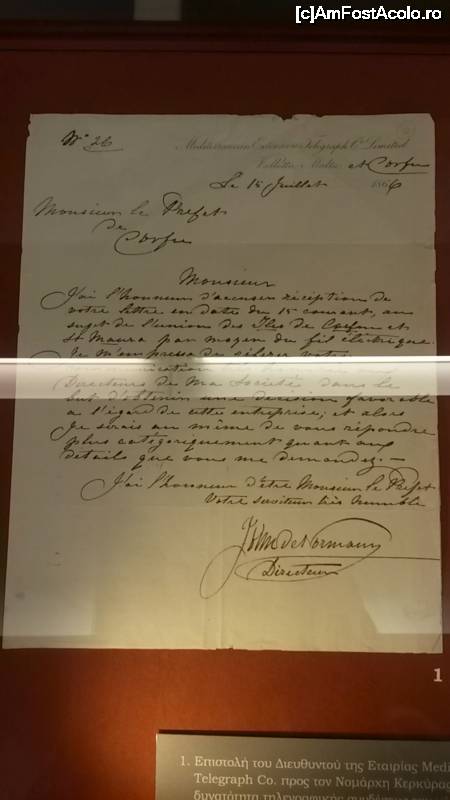 [c]AmFostAcolo.ro
N° 26
Mediterranean Extension Telegraph Co. Limited
Valletta, Malta et Corfu
Le 15 Juillet 1866
Monsieur le Prefet
de
Corfu
Monsieur
J'ai l'honneur d'accuser réception de
votre lettre en date du 15 courant, au
sujet de l'union des Iles de Corfou et
St Maura par moyen du fil électrique.
Je m'empresse de
Directeurs de Ma Société dans le
but d'obtenir une decision favorable
a l'égard de cette entreprise; et alors
Je serais au même de vous répondre
plus catégoriquement quant aux
details que vous me demandez. —
J'ai l'honneur d'être Monsieur le Prefet
Votre serviteur très humble
de Normann
Directeur
1
1. Επιστολή του Διευθυντού της Εταιρίας Medi
Telegraph Co. προς τον Νομάρχη Κερκύρας
δυνατότητα τηλεγραφικής